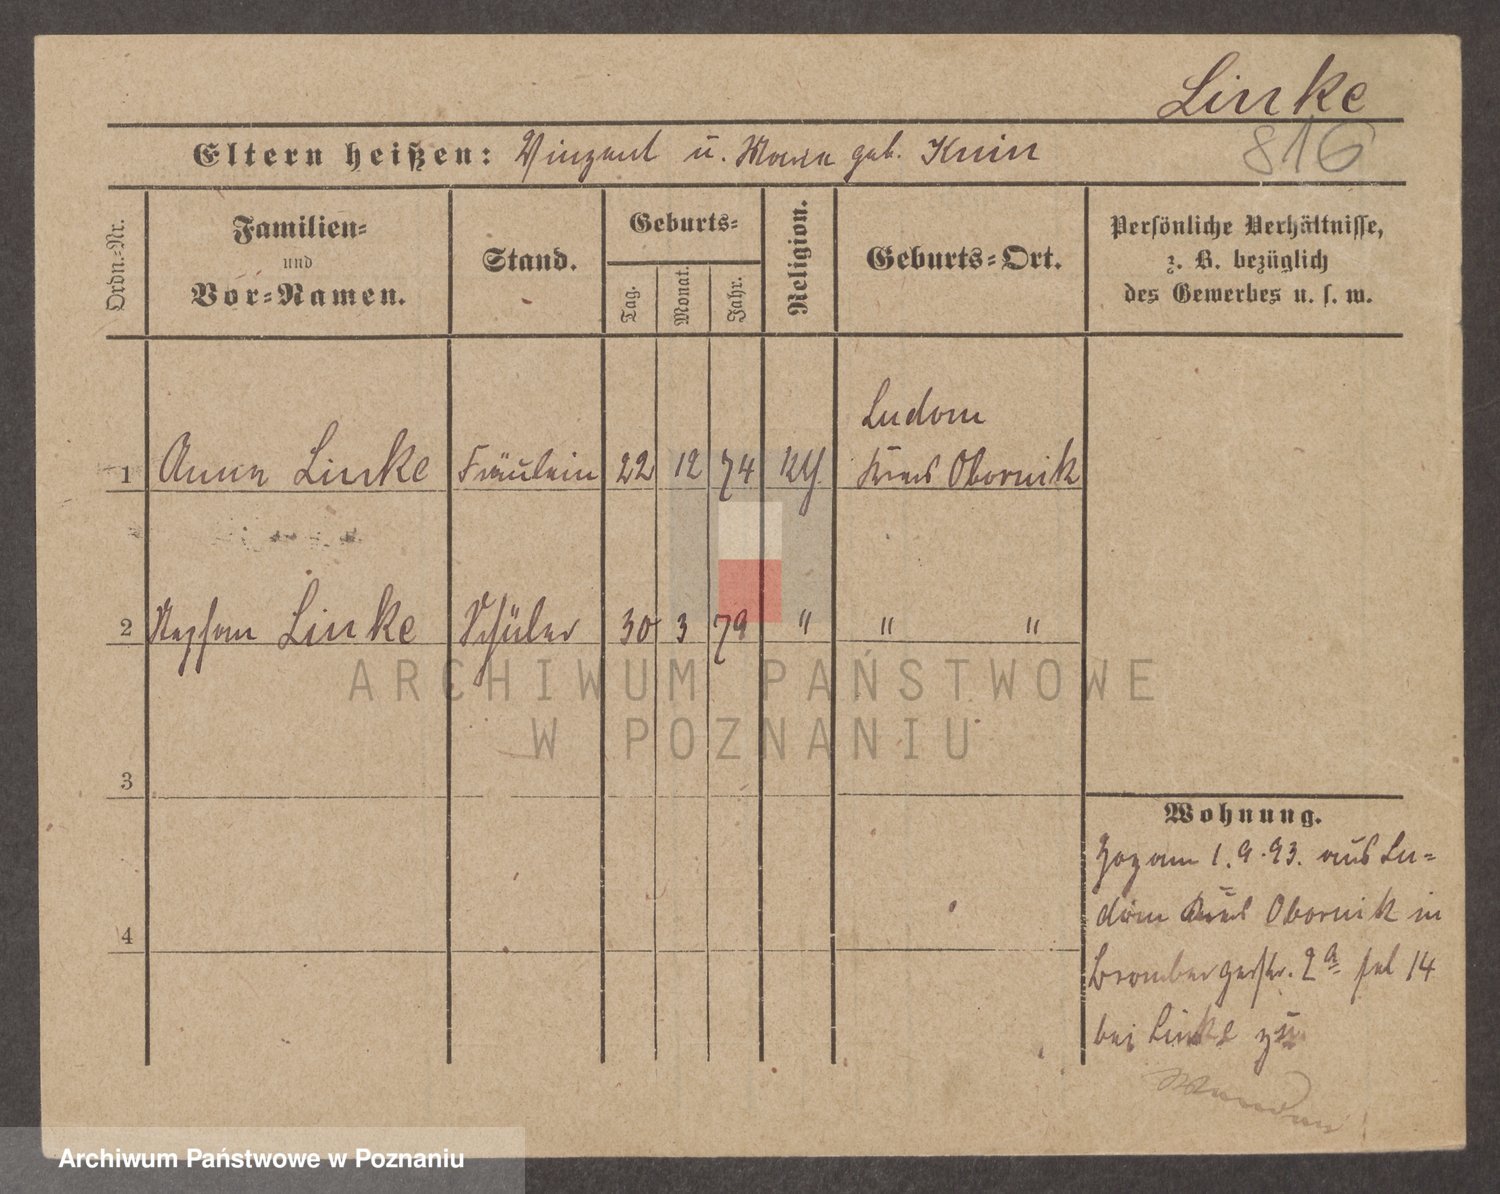 Linke
816
Eltern heißen: Vinzent u. Maria geb. Knin
Ordn.-Nr.
Familien-
und
Vor-Namen.
Stand.
Geburts-
Tag.
Monat.
Jahr.
Religion.
Geburts-Ort.
Persönliche Verhältnisse,
z. B. bezüglich
des Gewerbes u. s. w.
Ludom
1 Anna Linke Fräulein 22 12 74 Kreis Obornik
2 Linke Schüler 30 3 79 " " "
3
4
Wohnung.
Zog am 1.9.93. aus Lu-
dom Kreis Obornik in
Brombergerstr. 2a 14
bei Linke zu
ARCHIWUM PAŃSTWOWE
W POZNANIU
Archiwum Państwowe w Poznaniu